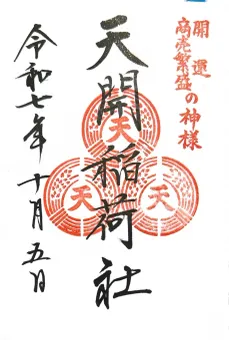 開運
商売繁盛の神様
天開稲荷社
令和七年十月五日
天
天
天